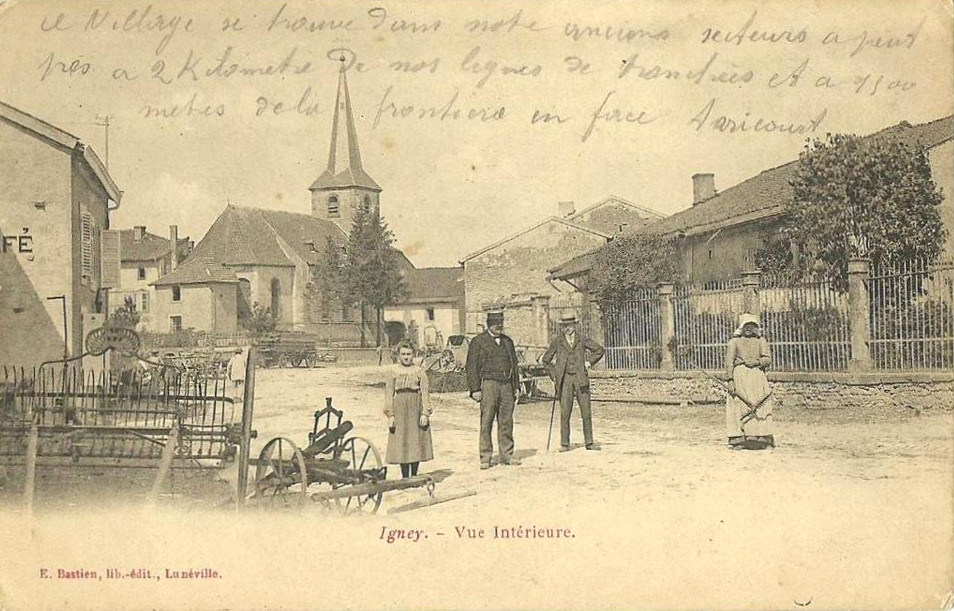 ce Village se trouve dans notre anciens secteurs a peut
pres a 2 Kilometre De nos lignes de tranchées et a 1500
metres de la frontiere en face Avricourt
FÉ
Igney. - Vue Intérieure.
E. Bastien, lib.-édit., Lunéville.